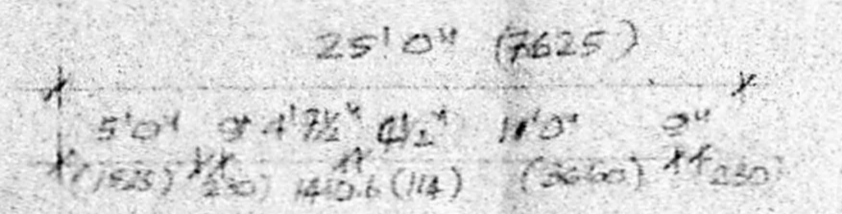 25'0" (7625)
5'0" 9" 4'7½" 4½" 11'0" 9"
(1525) 230) (114) (3660) 230)